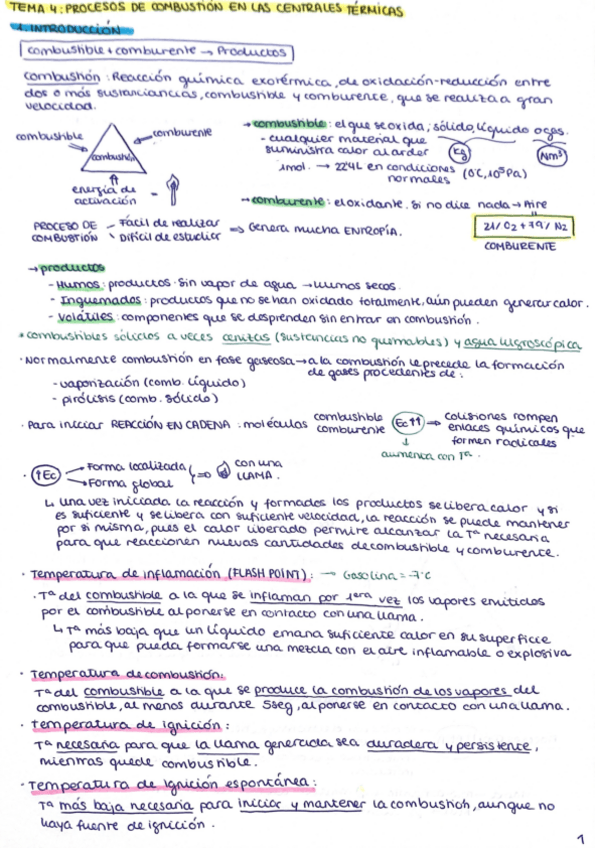 TEMA 4: PROCESOS DE COMBUSTIÓN EN LAS CENTRALES TÉRMICAS
1. INTRODUCCIÓN
combustible + comburente → Productos
combustión: Reacción química exotérmica, de oxidación-reducción entre
dos o más sustanciancias, combustible y comburente, que se realiza a gran
velocidad.
combustible
comburente
combustión
energía de
activación
→ combustible: el que se oxida; sólido, líquido o gas.
- cualquier material que
suministra calor al arder
kg
Nm³
1mol. → 22'4L en condiciones
normales
(0ºC, 10⁵Pa)
→ comburente: el oxidante. Si no dice nada → Aire
21% O2 + 79% N2
COMBURENTE
PROCESO DE
COMBUSTIÓN
- Fácil de realizar
- Difícil de estudiar
⇒ Genera mucha ENTROPÍA.
→ productos
- Humos: productos. Sin vapor de agua → Humos secos.
- Inquemados: productos que no se han oxidado totalmente, aún pueden generar calor.
- Volátiles: componentes que se desprenden sin entrar en combustión.
* combustibles sólidos a veces cenizas (sustancias no quemables) y agua higroscópica
· Normalmente combustión en fase gaseosa → a la combustión le precede la formación
de gases procedentes de:
- vaporización (comb. líquido)
- pirólisis (comb. sólido)
· Para iniciar REACCIÓN EN CADENA: moléculas
combustible
comburente
Ec↑↑
→ colisiones rompen
enlaces químicos que
formen radicales
aumenta con Tª.
· ↑Ec
Forma localizada
Forma global
⇒
con una
LLAMA.
↳ una vez iniciada la reacción y formados los productos se libera calor y si
es suficiente y se libera con suficiente velocidad, la reacción se puede mantener
por sí misma, pues el calor liberado permite alcanzar la Tª necesaria
para que reaccionen nuevas cantidades de combustible y comburente.
· Temperatura de inflamación (FLASH POINT): → Gasolina = -7ºC
· Tª del combustible a la que se inflaman por 1era vez los vapores emitidos
por el combustible al ponerse en contacto con una llama.
↳ Tª más baja que un líquido emana suficiente calor en su superficie
para que pueda formarse una mezcla con el aire inflamable o explosiva
· Temperatura de combustión:
Tª del combustible a la que se produce la combustión de los vapores del
combustible, al menos durante 5seg, al ponerse en contacto con una llama.
· Temperatura de ignición:
Tª necesaria para que la llama generada sea duradera y persistente,
mientras quede combustible.
· Temperatura de ignición espontánea:
Tª más baja necesaria para iniciar y mantener la combustión, aunque no
haya fuente de ignición.
1